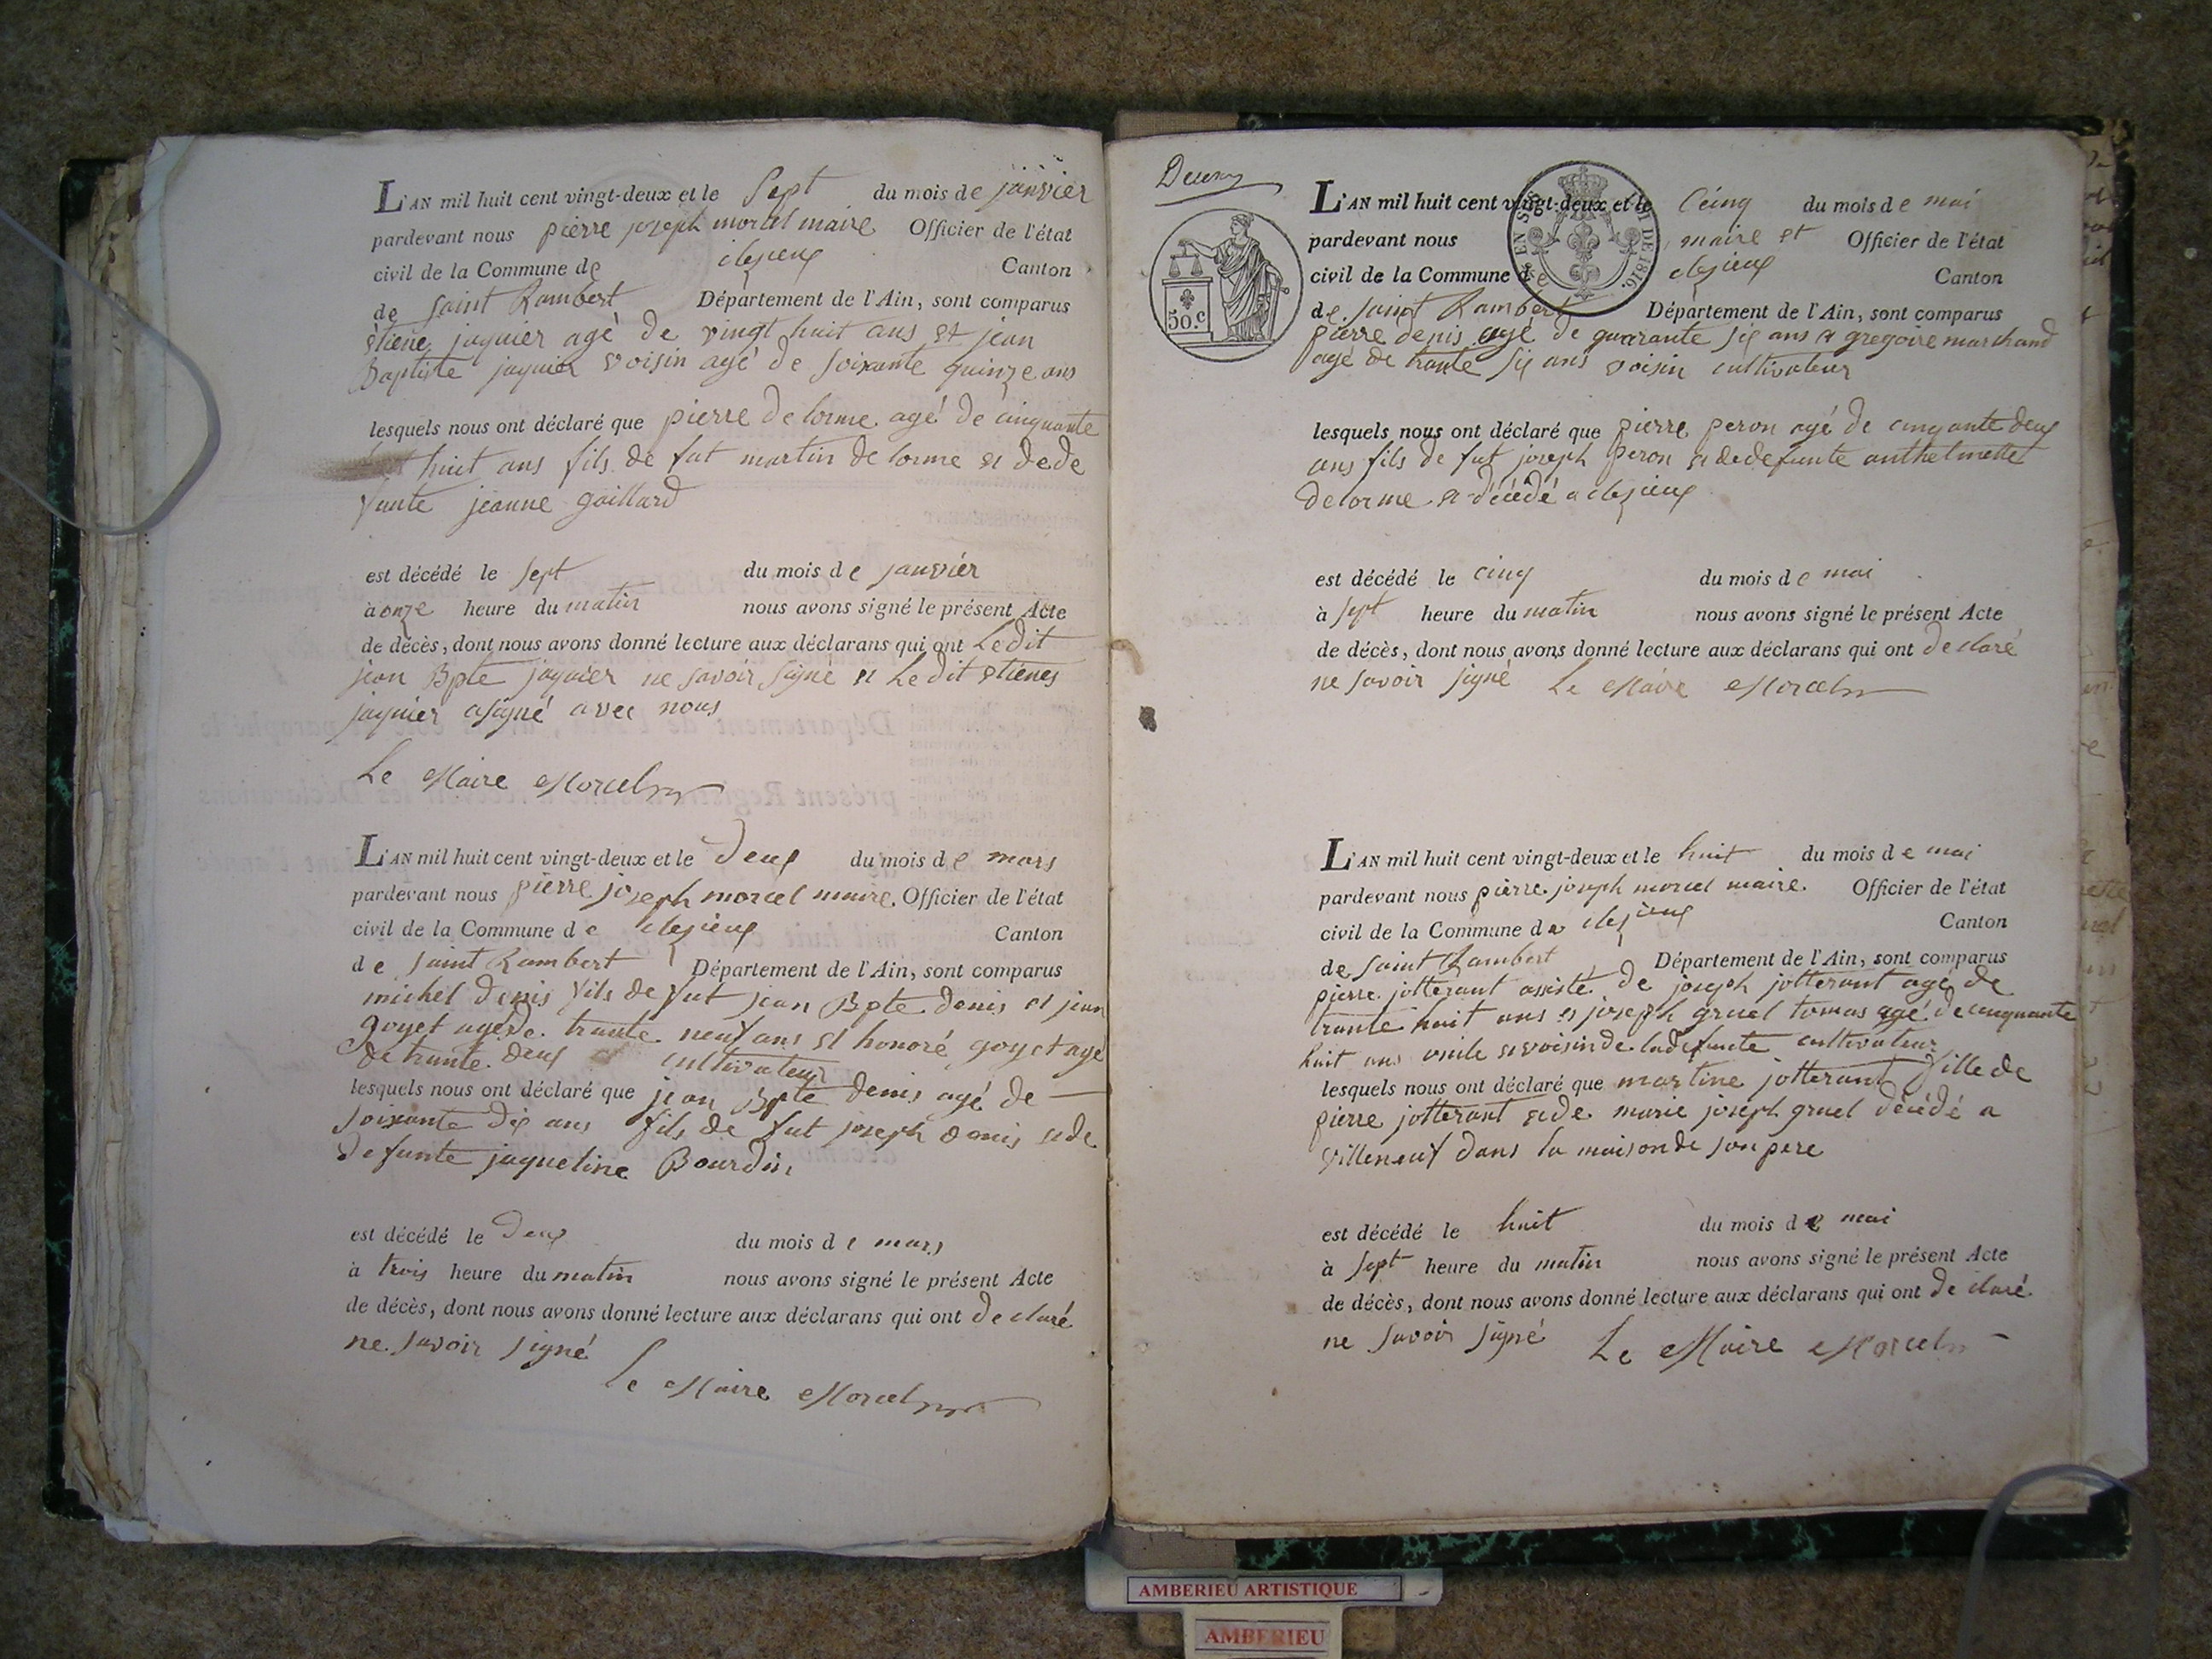 L'AN mil huit cent vingt-deux et le Sept du mois de janvier
pardevant nous pierre joseph morcel maire Officier de l'état
civil de la Commune de clezieux Canton
de saint Rambert Département de l'Ain, sont comparus
étiene jaquier agé de vingt huit ans et jean
Baptiste jaquier voisin agé de soixante quinze ans
lesquels nous ont déclaré que pierre de lorme agé de cinquante
huit ans fils de fut martin de lorme et dede
funte jeanne gaillard
est décédé le sept du mois de janvier
à onze heure du matin nous avons signé le présent Acte
de décès, dont nous avons donné lecture aux déclarans qui ont Ledit
jean Bpte jaquier ne savoir signé et Ledit etienes
jaquier asigné avec nous
Le Maire Morcel
L'AN mil huit cent vingt-deux et le deux du mois de mars
pardevant nous pierre joseph morcel maire Officier de l'état
civil de la Commune de clezieux Canton
de saint Rambert Département de l'Ain, sont comparus
michel denis fils de fut jean Bpte denis et jean
goyet agé de trante neuf ans et honoré goyet agé
de trante deux cultivateur
lesquels nous ont déclaré que jean Bpte denis agé de
soixante dix ans fils de fut joseph denis et de
defunte jaqueline Bourdin
est décédé le deux du mois de mars
à trois heure du matin nous avons signé le présent Acte
de décès, dont nous avons donné lecture aux déclarans qui ont declaré
ne savoir signé
Le Maire Morcel
50.c
EN SUS
DE 1816.
L'AN mil huit cent vingt-deux et le Cinq du mois de mai
pardevant nous maire et Officier de l'état
civil de la Commune de clezieux Canton
de saint Rambert Département de l'Ain, sont comparus
pierre denis agé de quarante six ans et gregoire marchand
agé de trante six ans voisin cultivateur
lesquels nous ont déclaré que pierre peron agé de cinqante deux
ans fils de fut joseph peron et dedefunte anthelmette
delorme et décédé a clezieux
est décédé le cinq du mois de mai
à sept heure du matin nous avons signé le présent Acte
de décès, dont nous avons donné lecture aux déclarans qui ont declaré
ne savoir signé Le Maire Morcel
L'AN mil huit cent vingt-deux et le huit du mois de mai
pardevant nous pierre joseph morcel maire Officier de l'état
civil de la Commune de clezieux Canton
de saint Rambert Département de l'Ain, sont comparus
pierre jotterant assisté de joseph jotterant agé de
trante huit ans et joseph gruel tomas agé de cinquante
huit ans et voisin de ladefunte cultivateur
lesquels nous ont déclaré que martine jotterant fille de
pierre jotterant et de marie joseph gruel décédé a
villeneuf dans la maison de son pere
est décédé le huit du mois de mai
à sept heure du matin nous avons signé le présent Acte
de décès, dont nous avons donné lecture aux déclarans qui ont declaré
ne savoir signé Le Maire Morcel
AMBERIEU ARTISTIQUE
AMBERIEU